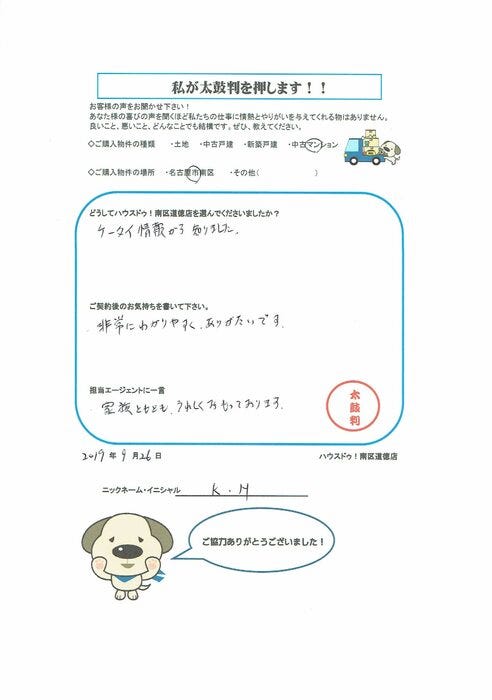 私が太鼓判を押します！！
お客様の声をお聞かせ下さい！
あなた様の喜びの声を聞くほど私たちの仕事に情熱とやりがいを与えてくれる物はありません。
良いこと、悪いこと、どんなことでも結構です。ぜひ、教えてください。
◇ご購入物件の種類 ・土地 ・中古戸建 ・新築戸建 ・中古マンション
◇ご購入物件の場所 ・名古屋市南区 ・その他( )
どうしてハウスドゥ！南区道徳店を選んでくださいましたか？
ケータイ情報から知りました。
ご契約後のお気持ちを書いて下さい。
非常にわかりやすく、ありがたいです。
担当エージェントに一言
家族ともども、うれしくおもっております。
太鼓判
2019年9月26日 ハウスドゥ！南区道徳店
ニックネーム・イニシャル K.H
ご協力ありがとうございました！